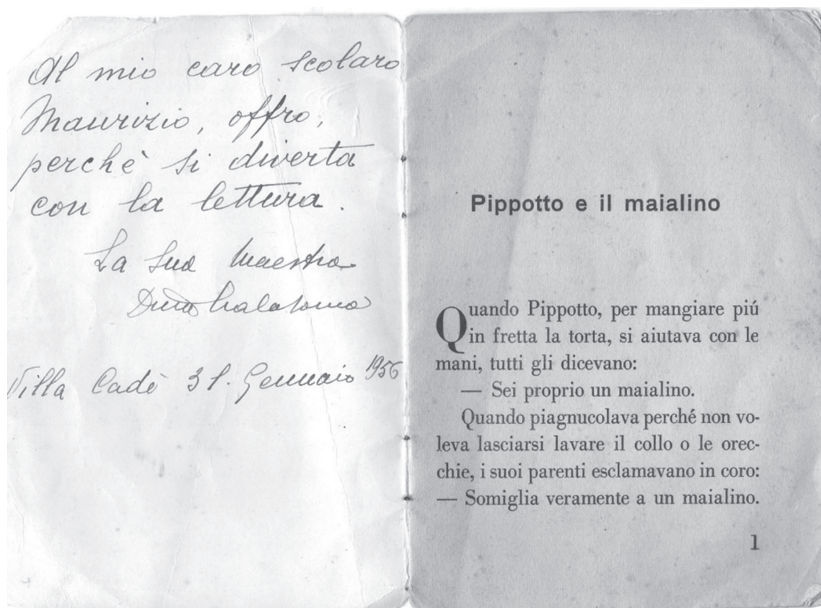 Al mio caro scolaro
Maurizio, offro,
perchè si diverta
con la lettura.
La sua Maestra
Villa Cadè 31. Gennaio 1956
Pippotto e il maialino
Quando Pippotto, per mangiare piú
in fretta la torta, si aiutava con le
mani, tutti gli dicevano:
— Sei proprio un maialino.
Quando piagnucolava perché non vo-
leva lasciarsi lavare il collo o le orec-
chie, i suoi parenti esclamavano in coro:
— Somiglia veramente a un maialino.
1